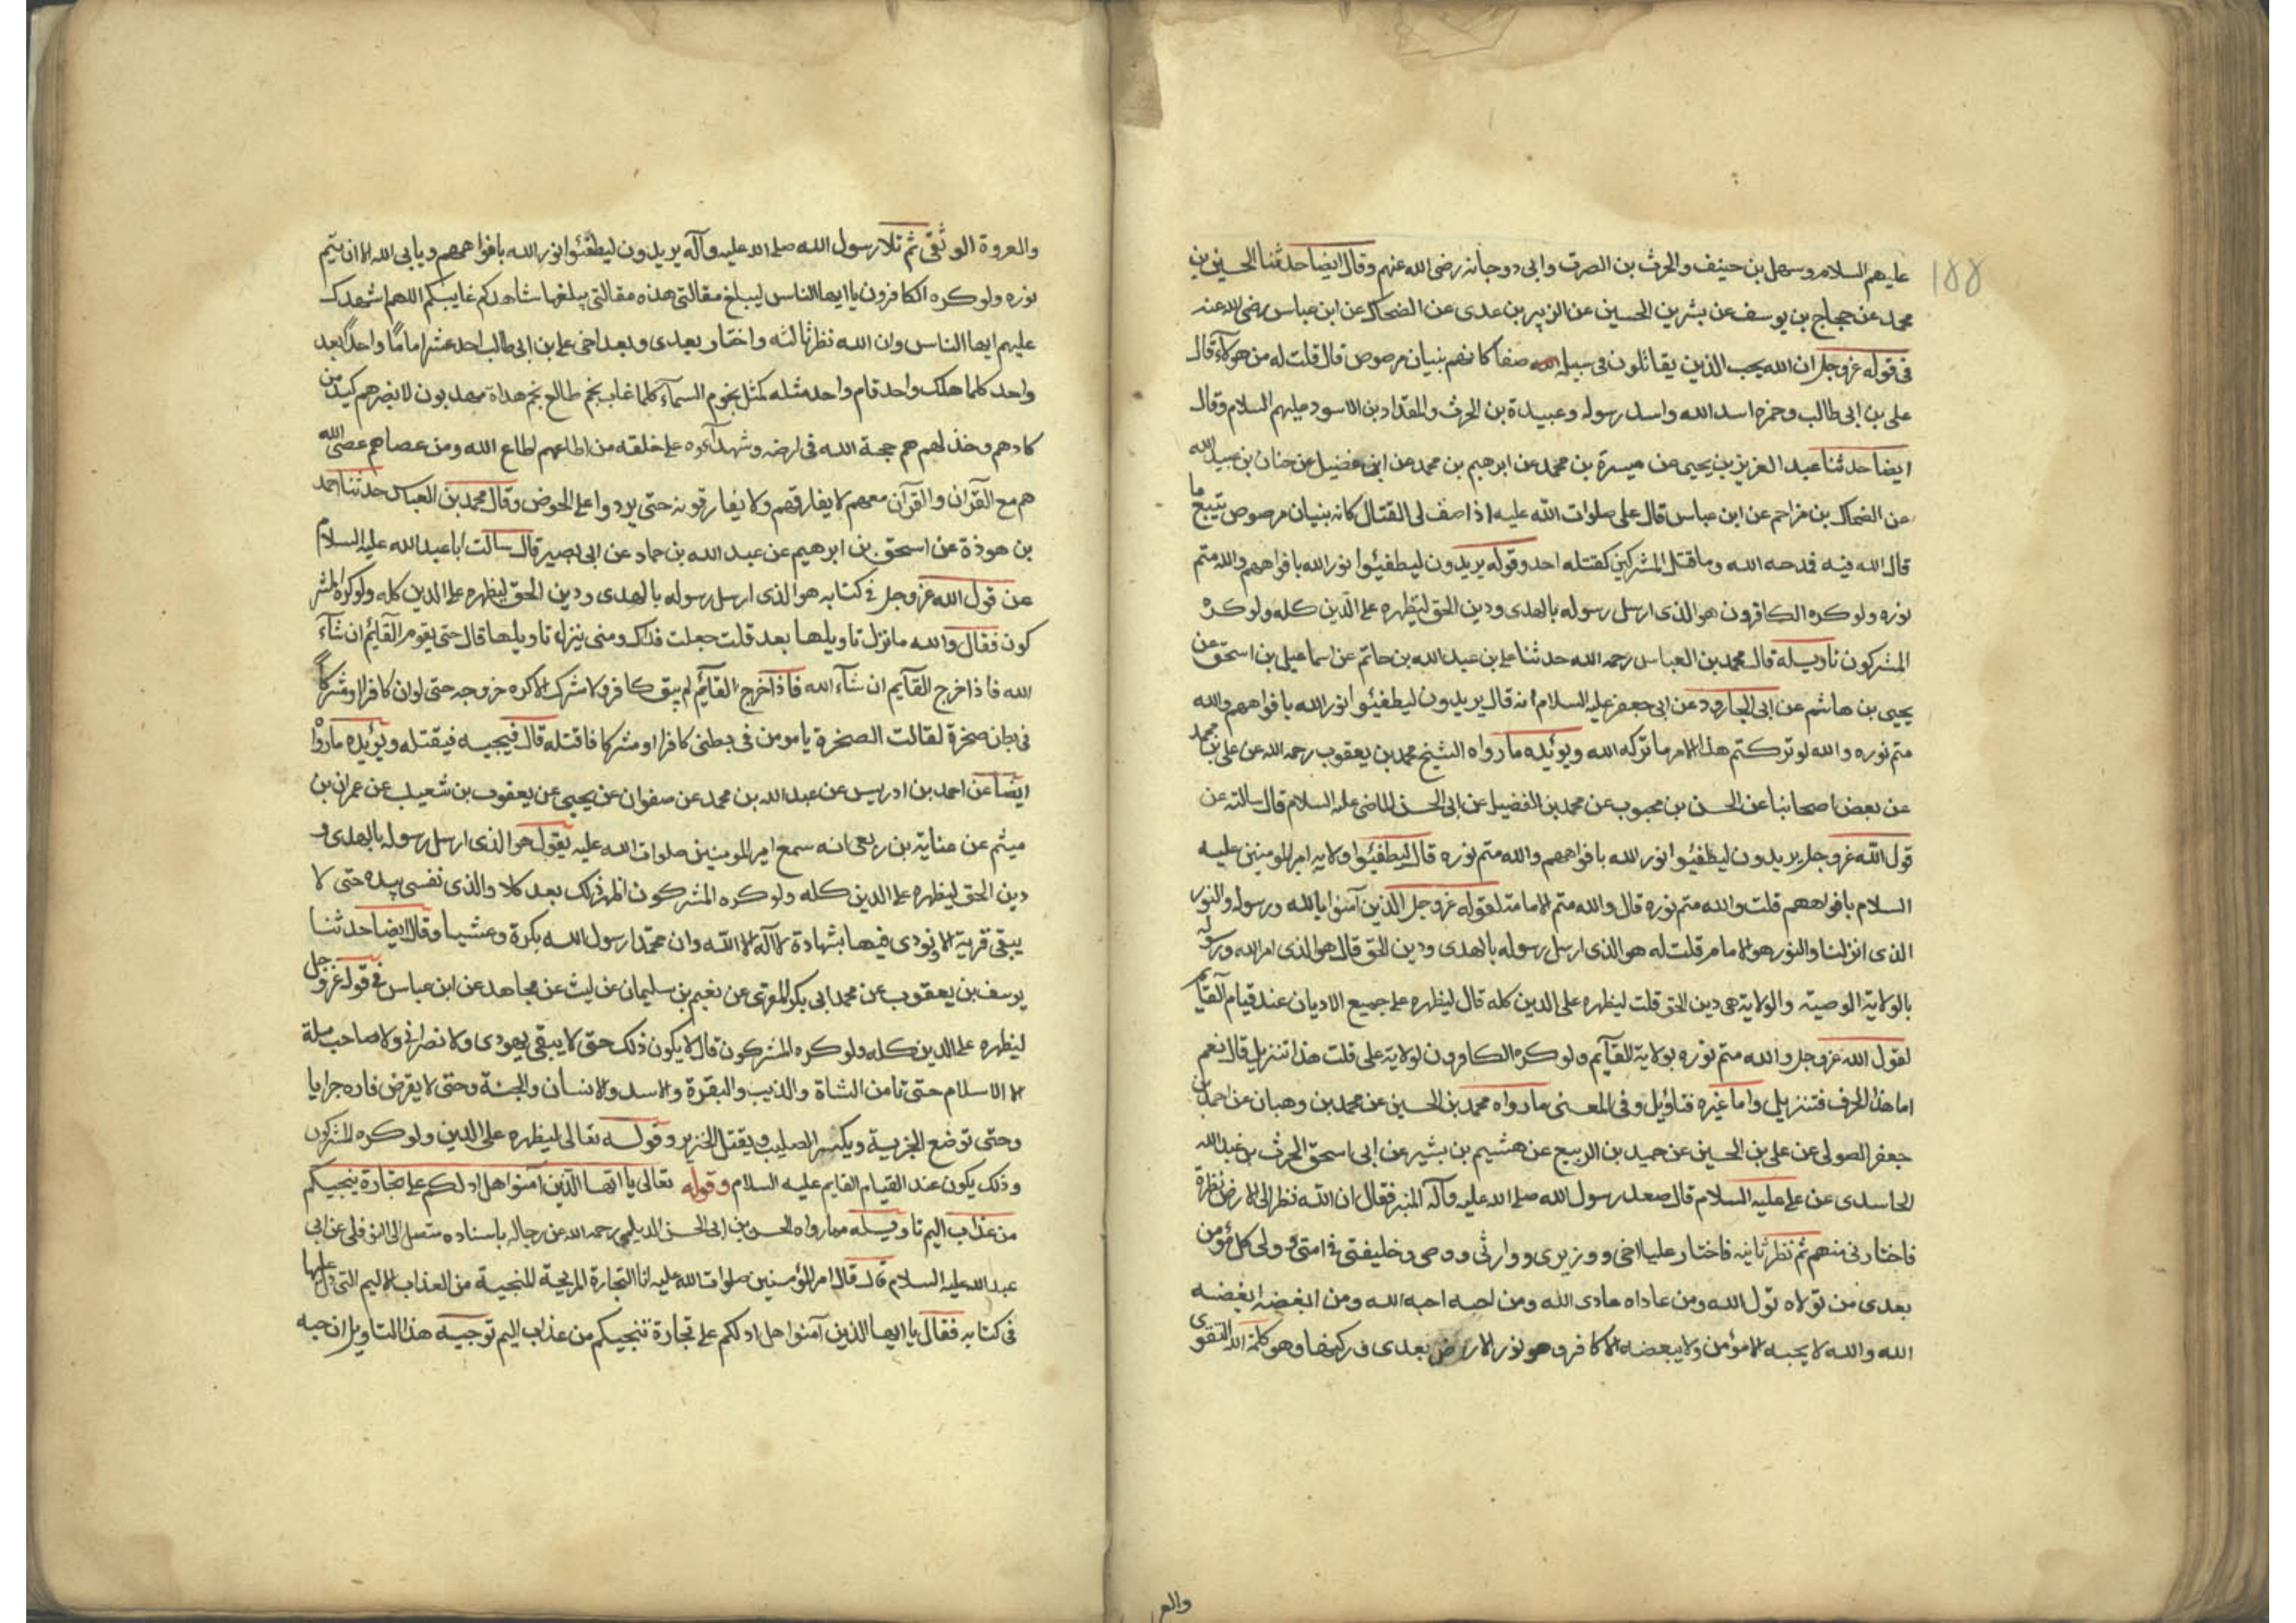 ١٥٥
عليهم السلام وسهل بن حنيف والحرث بن الصرت وابى دوجانه رضى الله عنهم وقال ايضا حدثنا الحسين بن
محمد عن حجاج بن يوسف عن بشر بن الحسين عن الزبير بن عدى عن الضحاك عن ابن عباس رضى الله عنه
فى قوله عز وجل ان الله يحب الذين يقاتلون فى سبيله صفا كانهم بنيان مرصوص قال قلت له من هولآء قال
على بن ابى طالب وحمزه اسد الله واسد رسوله وعبيدة بن الحرث والمقداد بن الاسود عليهم السلام وقال
ايضا حدثنا عبد العزيز بن يحيى عن ميسرة بن محمد عن ابرهيم بن محمد عن ابن فضيل عن حنان بن عبيد الله
عن الضحاك بن مزاحم عن ابن عباس قال على صلوات الله عليه اذا صف لى القتال كانه بنيان مرصوص يتبع ما
قال الله فيه فمدحه الله وما قتل المشركين كقتله احد وقوله يريدون ليطفئوا نور الله بافواههم والله متم
نوره ولو كره الكافرون هو الذى ارسل رسوله بالهدى ودين الحق ليظهره على الدين كله ولو كره
المشركون تاويله قال محمد بن العباس رحمه الله حدثنا على بن عبد الله بن حاتم عن اسماعيل بن اسحق عن
يحيى بن هاشم عن ابى الجارود عن ابى جعفر عليه السلام انه قال يريدون ليطفئوا نور الله بافواههم والله
متم نوره والله لو تركتم هذا الامر ما تركه الله ويؤيده ما رواه الشيخ محمد بن يعقوب رحمه الله عن على بن محمد
عن بعض اصحابنا عن الحسن بن محبوب عن محمد بن الفضيل عن ابى الحسن الماضى عليه السلام قال سالته عن
قول الله عز وجل يريدون ليطفئوا نور الله بافواههم والله متم نوره قال ليطفئوا ولاية امير المومنين عليه
السلام بافواههم قلت والله متم نوره قال والله متم الامامة لقوله عز وجل الذين آمنوا بالله ورسوله والنور
الذى انزلنا والنور هو الامام قلت له هو الذى ارسل رسوله بالهدى ودين الحق قال هو الذى امر الله ورسوله
بالولاية الوصيه والولاية هى دين الحق قلت ليظهره على الدين كله قال ليظهره على جميع الاديان عند قيام القآيم
لقول الله عز وجل والله متم نوره بولاية القآيم ولو كره الكافرون لولاية على قلت هذا تنزيل قال نعم
اما هذا الحرف فتنزيل واما غيره فتاويل وفى المعنى ما رواه محمد بن الحسين عن محمد بن وهبان عن احمد بن
جعفر الصولى عن على بن الحسين عن حميد بن الربيع عن هشيم بن بشير عن ابى اسحق الحرث بن عبد الله
الحاسدى عن على عليه السلام قال صعد رسول الله صلى الله عليه وآله المنبر فقال ان الله نظر الى الارض نظرة
فاختارنى منهم ثم نظر ثانيه فاختار عليا اخى ووزيرى ووارثى ووصى وخليفتى فى امتى وولى كل مؤمن
بعدى من تولاه تول الله ومن عاداه عادى الله ومن احبه احبه الله ومن ابغضه ابغضه
الله والله لا يحبه الا مؤمن ولا يبغضه الا كافر وهو نور الارض بعدى وركنها وهو كلمة الله التقوى
والعر
والعروة الوثقى ثم تلا رسول الله صلى الله عليه وآله يريدون ليطفئوا نور الله بافواههم ويابى الله الا ان يتم
نوره ولو كره الكافرون يا ايها الناس ليبلغ مقالتى هذه مقالتى يبلغها شاهدكم غايبكم اللهم اشهدك
عليهم ايها الناس وان الله نظر ثالثه واختار بعدى وبعد اخى على بن ابى طالب احد عشر اماما واحدا بعد
واحد كلما هلك واحد قام واحد مثله كمثل نجوم السمآء كلما غاب نجم طالع نجم هداة مهديون لا يضرهم كيد من
كادهم وخذلهم هم حجة الله فى ارضه وشهدآءه على خلقه من اطاعهم اطاع الله ومن عصاهم عصى الله
هم مع القرآن والقرآن معهم لا يفارقهم ولا يفارقونه حتى يردوا على الحوض وقال محمد بن العباس حدثنا احمد
بن هوذة عن اسحق بن ابرهيم عن عبد الله بن حماد عن ابى بصير قال سالت ابا عبد الله عليه السلام
عن قول الله عز وجل فى كتابه هو الذى ارسل رسوله بالهدى ودين الحق ليظهره على الدين كله ولو كره المشر
كون فقال والله ما نزل تاويلها بعد قلت جعلت فداك ومتى ينزل تاويلها قال حتى يقوم القآئم ان شآء
الله فاذا خرج القآيم ان شآء الله فاذا خرج القآئم لم يبق كافر ولا مشرك الا كره خروجه حتى لو ان كافرا او مشركا
فى بطن صخرة لقالت الصخرة يا مومن فى بطنى كافر او مشركا فاقتله قال فيجيبه فيقتله ويؤيده ما رواه
ايضا عن احمد بن ادريس عن عبد الله بن محمد عن صفوان عن يحيى عن يعقوب بن شعيب عن عمران بن
ميثم عن عباية بن ربعى انه سمع امير المومنين صلوات الله عليه يقول هو الذى ارسل رسوله بالهدى و
دين الحق ليظهره على الدين كله ولو كره المشركون اظهر ذلك بعد كلا والذى نفسى بيده حتى لا
يبقى قرية الا ونودى فيها بشهادة لا اله الا الله وان محمدا رسول الله بكرة وعشيا وقال ايضا حدثنا
يوسف بن يعقوب عن محمد ابى بكر المقرى عن نعيم بن سليمان عن ليث عن مجاهد عن ابن عباس فى قوله عز وجل
ليظهره على الدين كله ولو كره المشركون قال لا يكون ذلك حتى لا يبقى يهودى ولا نصرانى ولا صاحب ملة
الا الاسلام حتى تامن الشاة والذيب والبقرة والاسد والانسان والحية وحتى لا يقرض فاره جرابا
وحتى توضع الجزية ويكسر الصليب ويقتل الخنزير وقوله تعالى ليظهره على الدين ولو كره المشركون
وذلك يكون عند القيام القايم عليه السلام وقوله تعالى يا ايها الذين آمنوا هل ادلكم على تجارة ينجيكم
من عذاب اليم تاويله مما رواه الحسن بن ابى الحسن الديلمى رحمه الله عن رجاله باسناده متصل الى النوفلى عن ابى
عبد الله عليه السلام قال قال امير المؤمنين صلوات الله عليه انا التجارة المربحة المنجية من العذاب الاليم التى دل عليها
فى كتابه فقال يا ايها الذين آمنوا هل ادلكم على تجارة تنجيكم من عذاب اليم توجيه هذا التاويل ان حبه